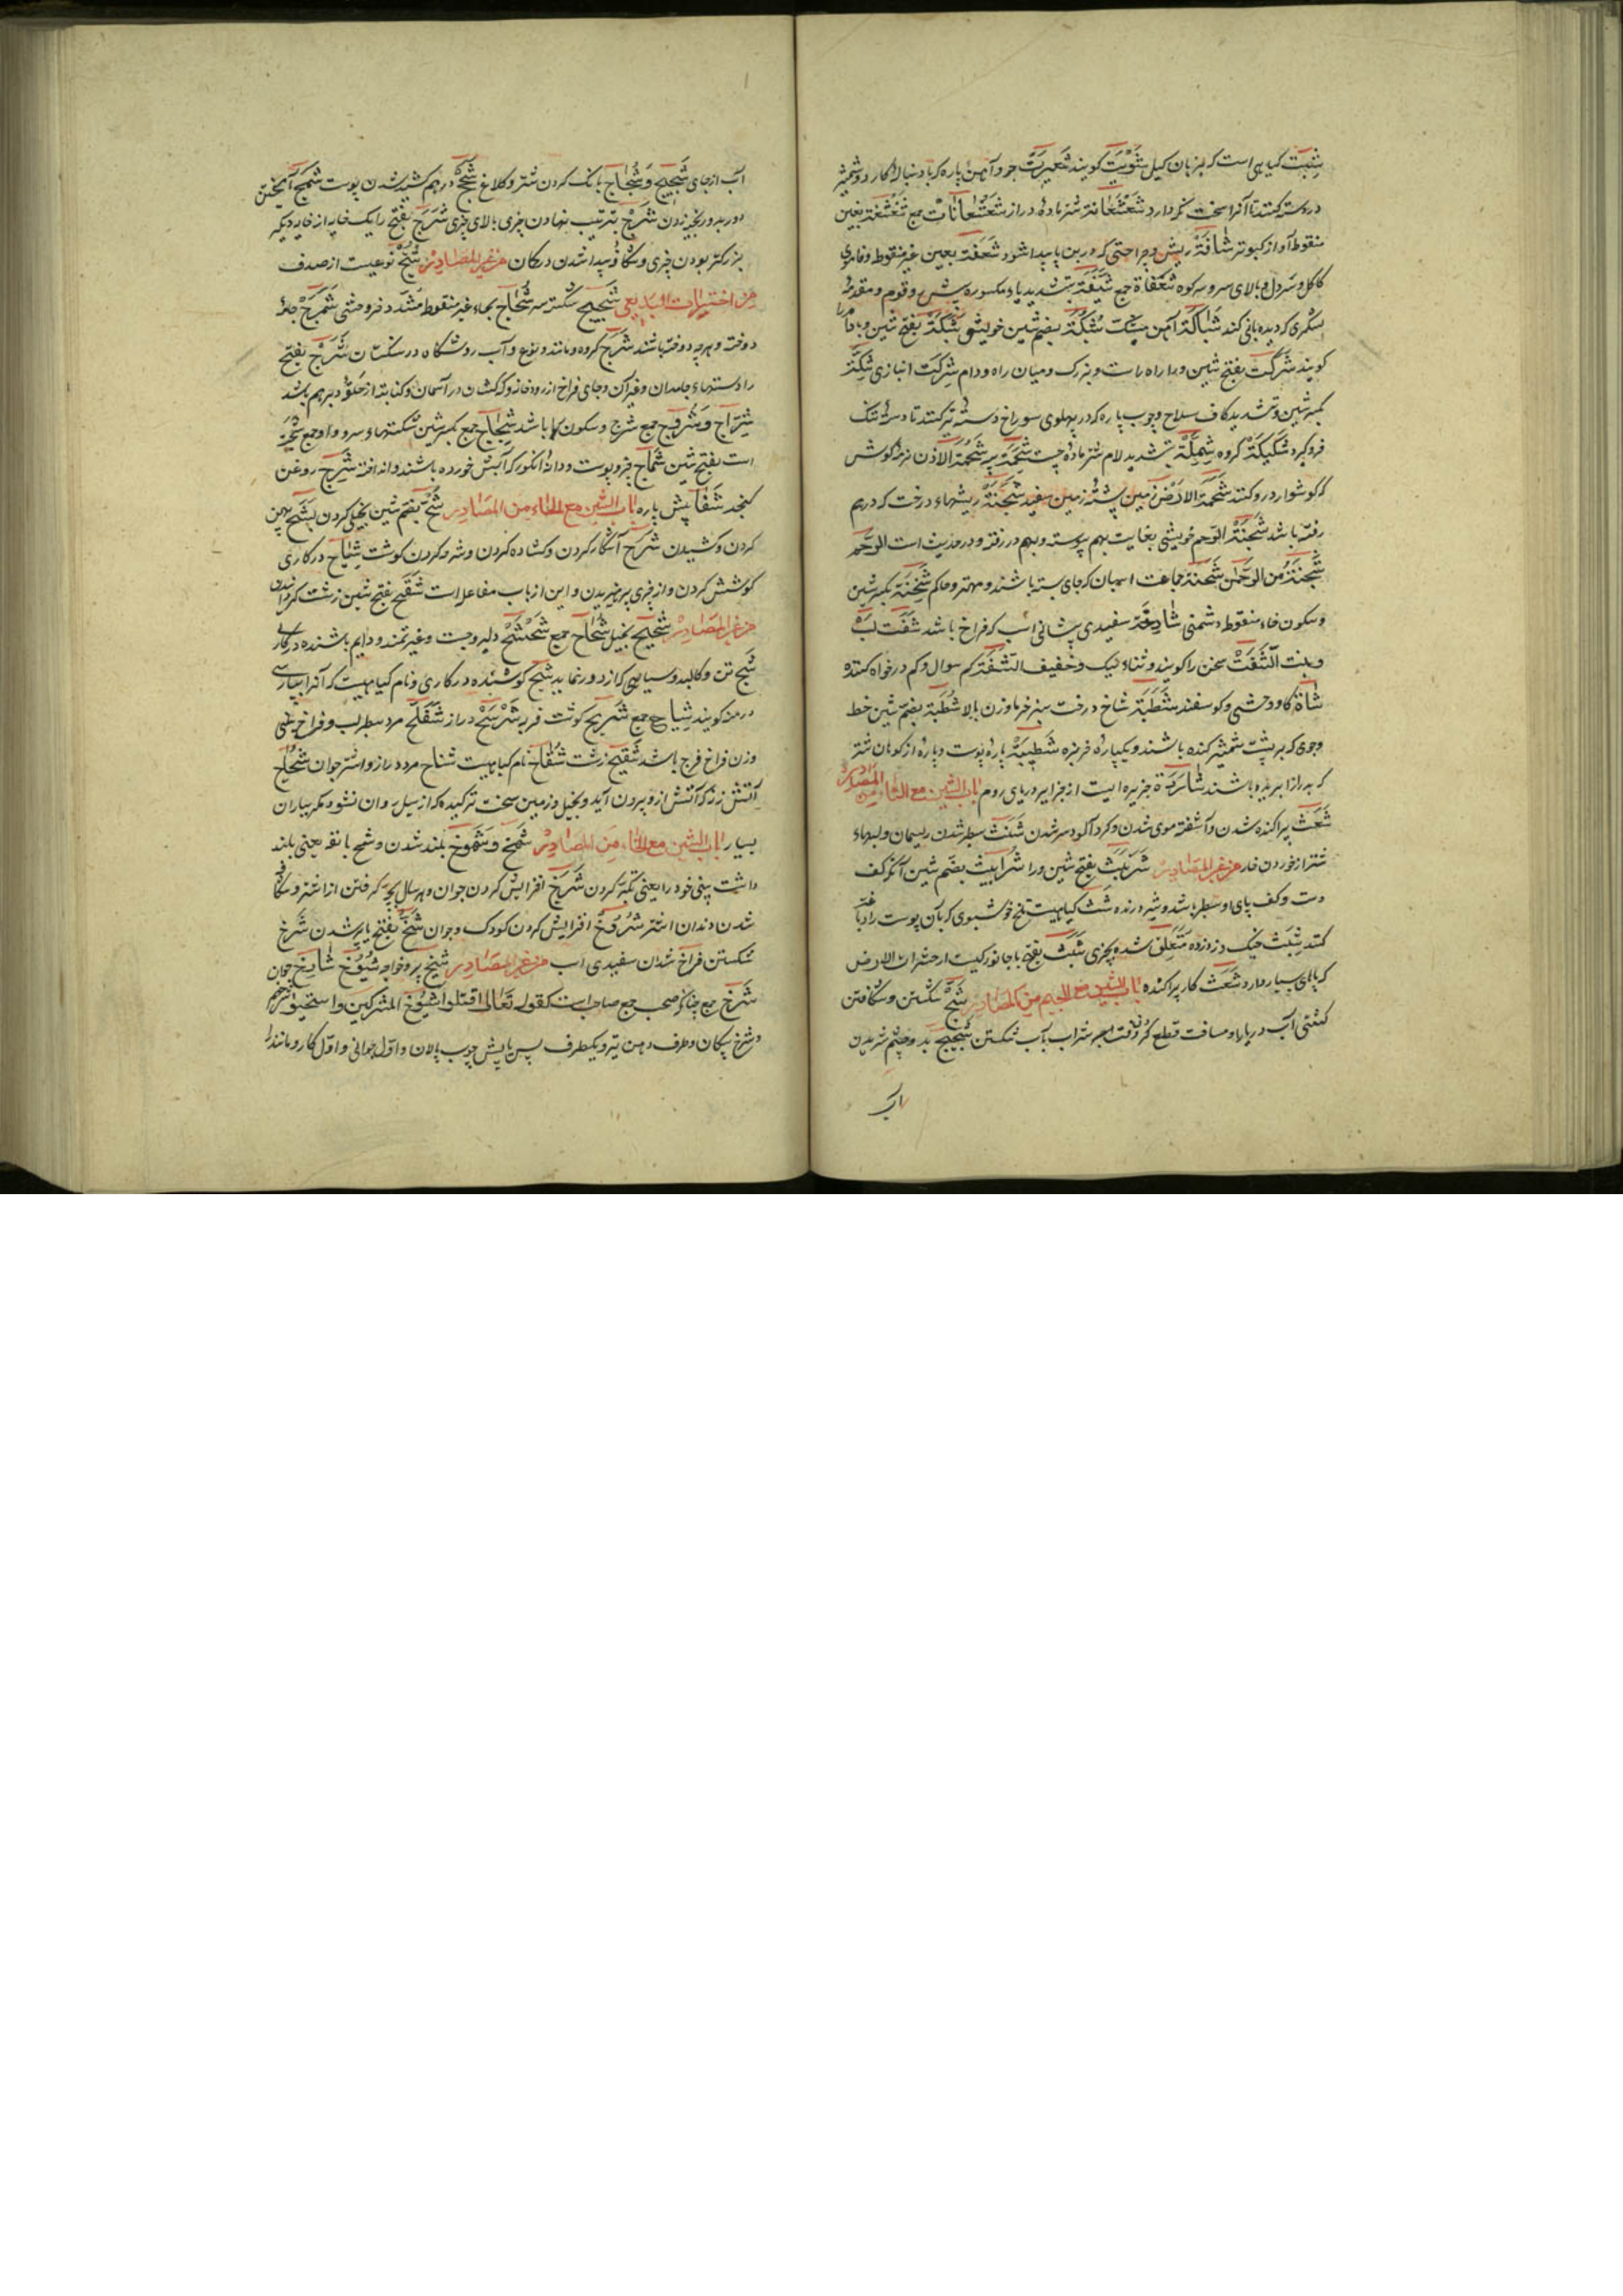 شبت کیاهی است که بزبان کیل شویت کویند شعیرت جو و آهن پاره که بادنبالهٔ کارد و شمشیر
در دسته کنند تا آنرا سخت نکه دارد شعشعانة شتر مادهٔ دراز شعشعانات جمع شغشغة بغین
منقوط آواز کبوتر شافة ریش و جراحتی که در بن پا پیدا شود شعفة بعین غیر منقوط و فا موی
کاکل و سر دل و بالای سر و سر کوه شعفاة جمع شیفة بتشدید یاء مکسوره پیش رو قوم و مقدمهٔ
لشکری که دیده بانی کند شباکة آهن شبکة بضم شین خویشی شبکة بفتح شین و با
کویند شرکت بفتح شین و را راه راست و بزرک و میان راه و دام شرکت انبازی شکة
بکسر شین و تشدید کاف سلاح و چوب پاره که در پهلوی سوراخ دستهٔ تبر کنند تا دسته تنک
فرو کیرد شکیکة کروه شملة بتشدید لام شتر مادهٔ چست شحمة پیه شحمة الاذن نرمهٔ کوش
که کوشوار در و کنند شحمة الارض زمین پشتهٔ زمین سفید شجنة ریشهاء درخت که در هم
رفته باشد شجنة الرحم خویشی بغایت بهم پیوسته و بهم در رفته و در حدیث است الرحم
شجنة من الرحمن شحنة جماعت اسپان که جای بسته باشند و مهتر و حاکم شحنة بکسر شین
و سکون خاء منقوط دشمنی شادخة سفیدی پیشانی اسب که فراخ باشد شفت لب
و بنت الشفت سخن را کویند و ثناء نیک و خفیف الشفة کم سوال و کم درخواه کننده
شاة کاو وحشی و کوسفند شطبة شاخ درخت سبز خرما و زن بالا شطبة بضم شین خط
و جوی که بر پشت شمشیر کنده باشند و یکپارهٔ خربزه شطیبة پارهٔ پوست و پارهٔ از کوهان شتر
که بدرازا بریده باشند جزیره ایست از جزایر دریای روم باب الشین مع الثاء من المصادر
شعث پراکنده شدن و آشفته موی شدن و کرد آلود سر شدن شثث سطبر شدن ریسمان و لبهاء
شتر از خوردن خار من غیر المصادر شرنبث بفتح شین و را شرابیث بضم شین آنکه کف
دست و کف پای او سطبر باشد و شیر درنده شث کیاهیست تلخ خوشبوی که بآن پوست را دباغت
کنند شبث چنک در زده و متعلق شده بچیزی شبث بفتح با جانوریست از حشرات الارض
که پای بسیار دارد شعث کار پراکنده باب الشین مع الجیم من المصادر شج شکستن و شکافتن
کشتی آب دریا را و مسافت قطع کردن و سر شراب بآب شکستن
آب
آب از جای شحیج و شحاج بانک کردن شتر و کلاغ شنج درهم کشیده شدن پوست شمج آمیختن
دور دور بخیه زدن شرج بترتیب نهادن چیزی بالای چیزی شرج بفتح را یک خایه از خایه دیکر
بزرکتر بودن چیزی و شکاف پیدا شدن در کمان من غیر المصادر شنج نوعیست از صدف
من اختیارات البدیعی شجیج شکسته سر شحاج بحاء غیر منقوط مشدد خر وحشی شمرج جامهٔ
دوخته و هرچه دوخته باشند شرج کروه و مانند و نوع و آب رو شکاه در سنکستان شرج بفتح
را دستهاء جامدان و غیر آن و جای فراخ از رودخانه و کهکشان در آسمان و کنایة از حلقهٔ دبر هم باشد
شراج و شروج جمع شرج و سکون را باشد شجاج جمع بکسر شین شکستهاء سر و رو او جمع شجة
است بفتح شین شماج بزر و پوست و دانهٔ انکور که آبش خورده باشند و انداخته شیرج روغن
کنجد شفاپیش پاره باب الشین مع الحاء من المصادر شح بضم شین بخیلی کردن شبح پهن
کردن و کشیدن شرح آشکار کردن و کشاده کردن و شرحه کردن کوشت شیاح در کاری
کوشش کردن و از چیزی پرهیزیدن و این از باب مفاعله است شقح بفتح شین زشت کردانیدن
من غیر المصادر شحیح بخیل شحاح جمع شحشح دلیر و چست و غیرتمند و دایم باشنده در کاری
شبح تن و کالبد و سیاهی که از دور نماید شیح کوشنده در کاری و نام کیاهیست که آنرا بپارسی
درمنه کویند شیاح جمع شریح کوشت فربه شرمح دراز شفلح مرد سطبر لب و فراخ بینی
و زن فراخ فرج باشد شقیح زشت شقاح نام کیاهیست شناح مرد دراز و اشتر جوان شحاح
آتش زنهٔ که آتش ازو بیرون آید و بخیل و زمین سخت ترکیده که از سیل روان نشود مکر بباران
بسیار باب الشین مع الخاء من المصادر شمخ و شموخ بلند شدن و شمخ بانفه یعنی بلند
داشت بینی خود را یعنی تکبر کردن شرخ افزایش کردن جوان و هر سال بچه کرفتن از اشتر و شکافته
شدن دندان اشتر شروخ افزایش کردن کودک و جوان شیخ بفتح یا پیر شدن شدخ
شکستن فراخ شدن سفیدی اسب من غیر المصادر شیخ پیر و خواجه شیوخ شارخ جوان
شرخ جمع چنانکه صحب جمع صاحب است کقوله تعالی اقتلوا شیوخ المشرکین و استحیوا شرخهم
و شرخ پیکان و طرف دهن تیر و یکطرف پس یا پیش چوب پالان و اول جوانی و اول کار و مانند